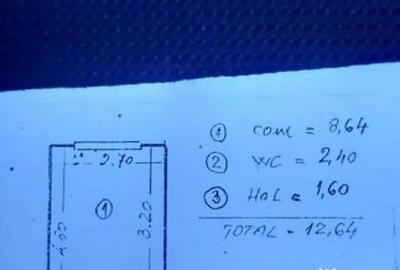 ① cam = 8,64
② WC = 2,40
③ HOL = 1,60
TOTAL - 12,64
2.70
①
3.20